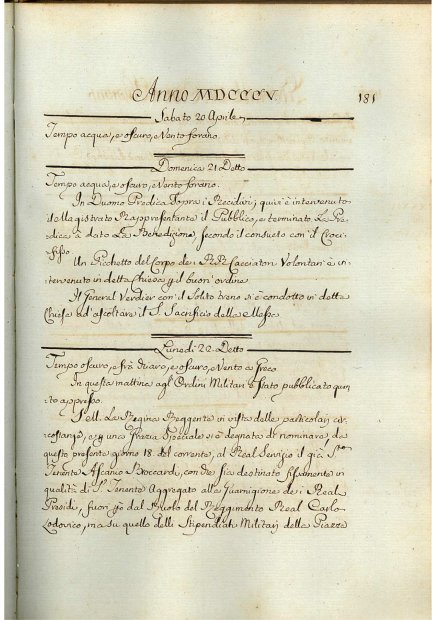 Anno MDCCCV.
181
Sabato 20 Aprile
Tempo acqua, e oscuro, e Vento forano.
Domenica 21 Detto
Tempo acqua, e oscuro, e Vento forano.
In Duomo Predica sopra i Recidivi; quivi è intervenuto
il Magistrato Rappresentante il Pubblico, e terminato La Pre-
dica à dato La Benedizione, secondo il consueto con il Croci-
fisso
Un Picchetto del Corpo dei RR Cacciatori Volontari è in-
tervenuto in detta Chiesa il buon ordine
Il General Verdier con il solito treno si è condotto in detta
Chiesa ad ascoltare il S. Sacrificio della Messa
Lunedì 22 Detto
Tempo oscuro, e oscuro, e Vento a Greco
In questa mattina agl'Ordini Militari è stato pubblicato quan-
to appresso.
S. M. La Regina Reggente in vista delle particolari cir-
costanze, e una Grazia Speciale si è degnata di nominare, da
questo presente giorno 18 del corrente, al Real Servizio il già
Tenente Ascanio Boccardi, con che sia destinato in
qualità di S. Tenente Aggregato alla Guarnigione dei Reali
Presidi, fuori dal Ruolo del Reggimento Real Carlo
Lodovico, ma su quello delli Stipendiati Militari della Piazza